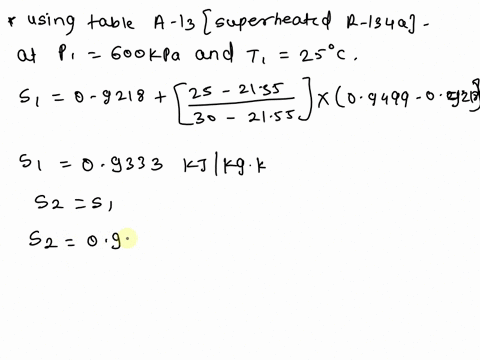 * using table A-13 [superheated R-134a].
at P1 = 600kPa and T1 = 25°C.
S1 = 0.9218 + [25 - 21.55 / 30 - 21.55] × (0.9499 - 0.9218)
S1 = 0.9333 KJ/kg.k
S2 = S1
S2 = 0.9